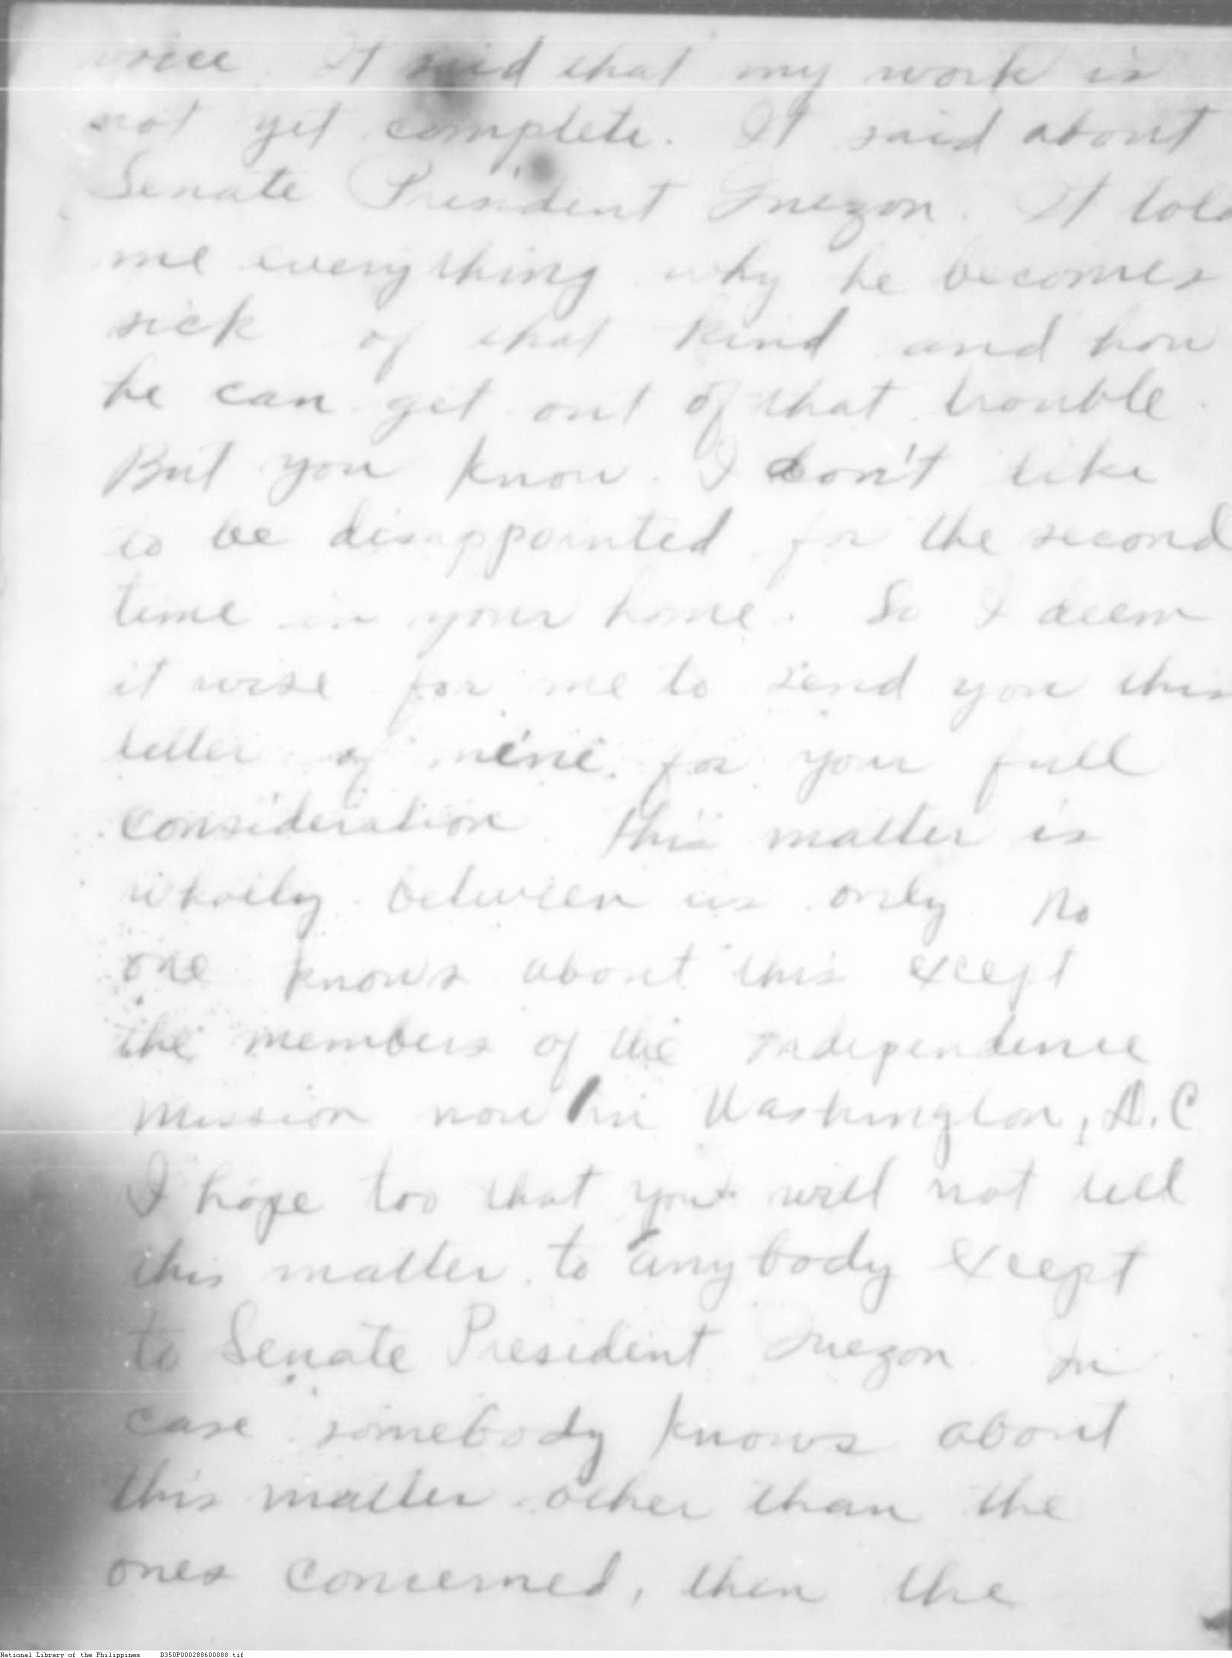 voice. It said that my work is
not yet complete. It said about
Senate President Quezon. It told
me everything why he becomes
sick of that kind and how
he can get out of that trouble.
But you know. I don't like
to be disappointed for the second
time in your home. So I deem
it wise for me to send you this
letter of mine for your full
consideration. This matter is
wholly between us only No
one knows about this except
the members of the Independence
Mission now in Washington, D.C
I hope too that you will not tell
this matter to anybody except
to Senate President Quezon In
case somebody knows about
this matter other than the
ones concerned, then the
National Library of the Philippines D350P000288600088.tif